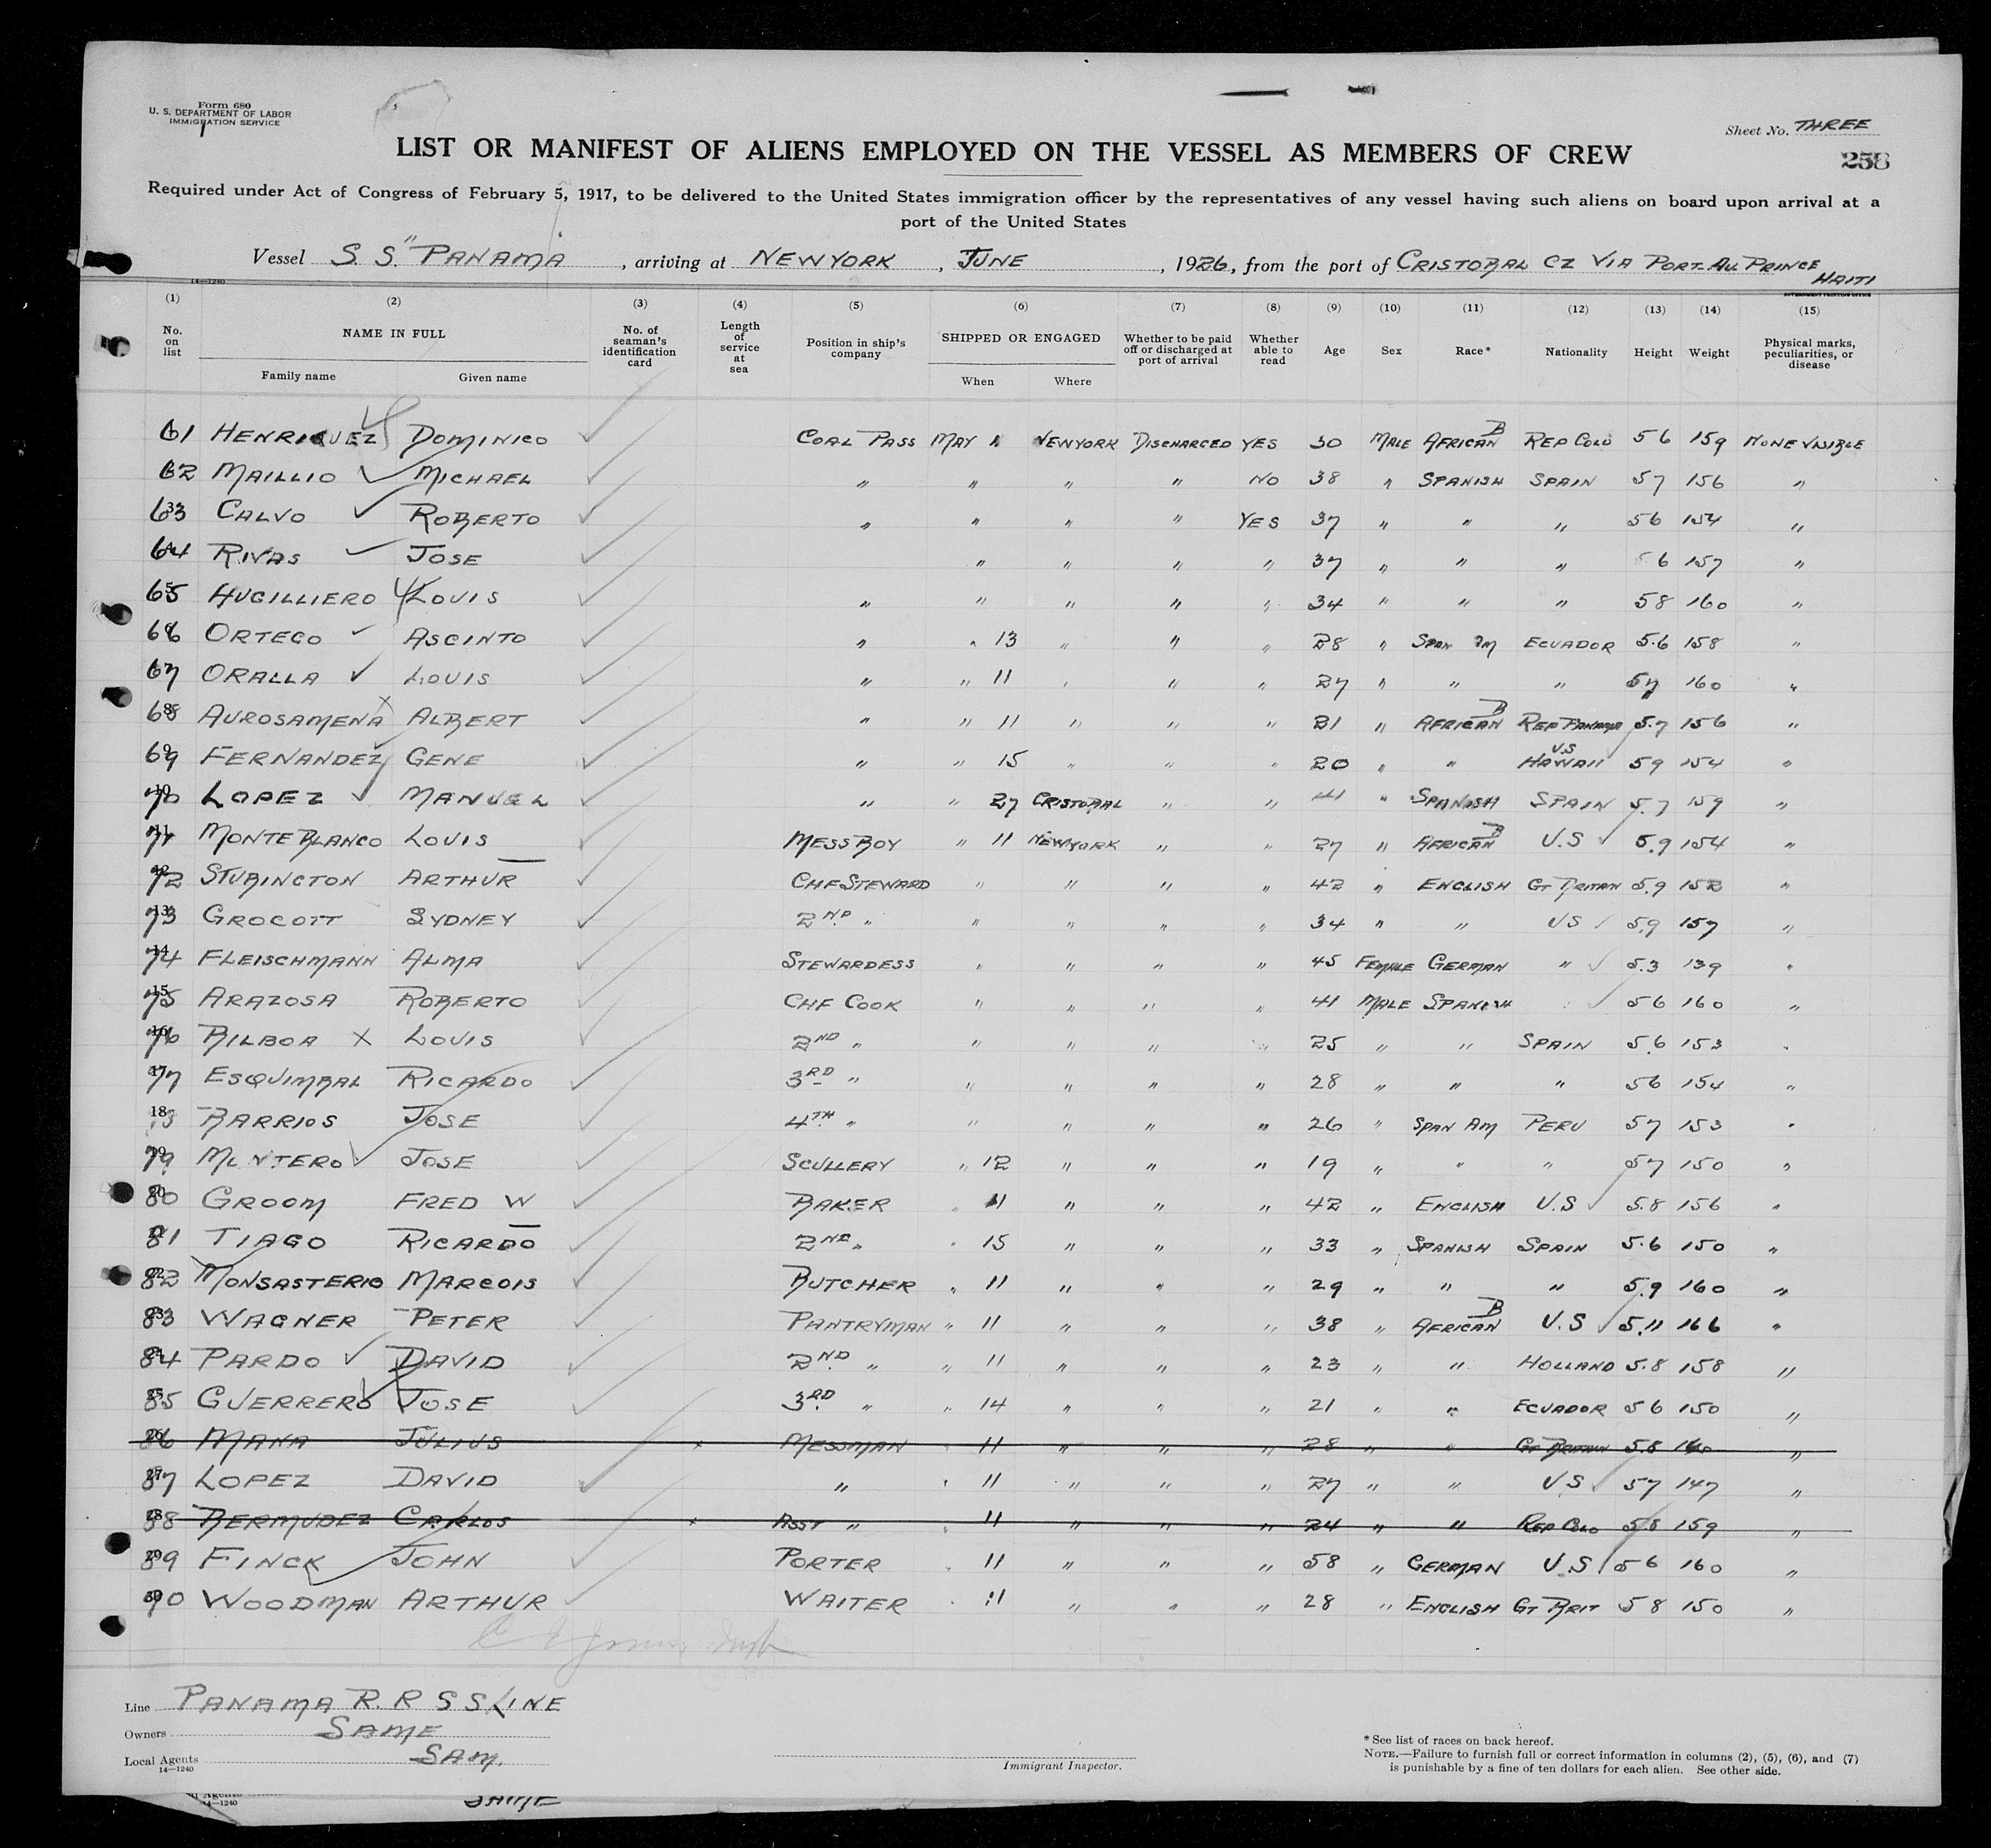 Form 680
U. S. DEPARTMENT OF LABOR
IMMIGRATION SERVICE
Sheet No. THREE
LIST OR MANIFEST OF ALIENS EMPLOYED ON THE VESSEL AS MEMBERS OF CREW
258
Required under Act of Congress of February 5, 1917, to be delivered to the United States immigration officer by the representatives of any vessel having such aliens on board upon arrival at a
port of the United States
Vessel S. S. "PANAMA , arriving at NEW YORK , JUNE , 1926, from the port of CRISTOBAL CZ VIA PORT-AU PRINCE
HAITI
14—1240
GOVERNMENT PRINTING OFFICE
(1) (2) (3) (4) (5) (6) (7) (8) (9) (10) (11) (12) (13) (14) (15)
No. on list NAME IN FULL Family name Given name No. of seaman's identification card Length of service at sea Position in ship's company SHIPPED OR ENGAGED When Where Whether to be paid off or discharged at port of arrival Whether able to read Age Sex Race* Nationality Height Weight Physical marks, peculiarities, or disease
61 HENRIQUEZ DOMINICO COAL PASS MAY 11 NEWYORK DISCHARGED YES 30 MALE AFRICAN B REP COLO 56 159 NONE VISIBLE
62 MAILLIO MICHAEL " " " " NO 38 " SPANISH SPAIN 57 156 "
63 CALVO ROBERTO " " " " YES 37 " " " 56 154 "
64 RIVAS JOSE " " " " 37 " " " 56 157 "
65 HUGILLIERO LOUIS " " " " " 34 " " " 58 160 "
66 ORTEGO ASCINTO " " 13 " " " 28 " SPAN AM ECUADOR 5.6 158 "
67 ORALLA LOUIS " " 11 " " " 27 " " " 57 160 "
68 AUROSAMENA ALBERT " " 11 " " " 21 " AFRICAN B REP PANAMA 5.7 156 "
69 FERNANDEZ GENE " " 15 " " " 20 " " U.S HAWAII 59 154 "
70 LOPEZ MANUEL " " 27 CRISTOBAL " " 41 " SPANISH SPAIN 5.7 159 "
71 MONTEBLANCO LOUIS MESSBOY " 11 NEWYORK " " 27 " AFRICAN B U.S 5.9 154 "
72 STUBINGTON ARTHUR CHF STEWARD " " " " 42 " ENGLISH GT BRITAIN 5.9 152 "
73 GROCOTT SYDNEY 2ND " " " " " 34 " " US 5.9 157 "
74 FLEISCHMANN ALMA STEWARDESS " " " " 45 FEMALE GERMAN " 5.3 139 "
75 ARAZOSA ROBERTO CHF COOK " " " " 41 MALE SPANISH 56 160 "
76 BILBOA LOUIS 2ND " " " " " 25 " " SPAIN 5.6 153 "
77 ESQUIMBAL RICARDO 3RD " " " " " 28 " " " 56 154 "
78 BARRIOS JOSE 4TH " " " " " 26 " SPAN AM PERU 57 153 "
79 MONTERO JOSE SCULLERY " 12 " " " 19 " " " 57 150 "
80 GROOM FRED W BAKER " 11 " " " 42 " ENGLISH U.S 5.8 156 "
81 TIAGO RICARDO 2ND " " 15 " " " 33 " SPANISH SPAIN 5.6 150 "
82 MONSASTERIO MARCOIS BUTCHER " 11 " " " 29 " " " 5.9 160 "
83 WAGNER PETER PANTRYMAN " 11 " " " 38 " AFRICAN B U.S 5.11 166 "
84 PARDO DAVID 2ND " " 11 " " " 23 " " HOLLAND 5.8 158 "
85 GUERRERO JOSE 3RD " " 14 " " " 21 " " ECUADOR 56 150 "
86 MANA JULIUS MESSMAN " 11 " " " 28 " " GT BRITAIN 5.8 160 "
87 LOPEZ DAVID " " 11 " " " 27 " " US 57 147 "
88 BERMUDEZ CARLOS ASST " " 11 " " " 24 " " REP COLO 58 159 "
89 FINCK JOHN PORTER " 11 " " " 58 " GERMAN U.S 56 160 "
90 WOODMAN ARTHUR WAITER " 11 " " " 28 " ENGLISH GT BRIT 58 150 "
Line PANAMA R. R S S LINE
Owners SAME
Local Agents SAM.
14—1240
Immigrant Inspector.
* See list of races on back hereof.
NOTE.—Failure to furnish full or correct information in columns (2), (5), (6), and (7)
is punishable by a fine of ten dollars for each alien. See other side.
14—1240
SAME